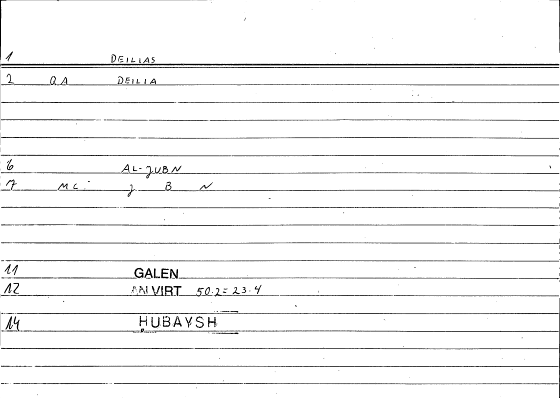 1 DEILIAS
2 QA DEILIA
6 AL-JUBN
7 MC- J B N
11 GALEN
12 AN VIRT 50.2=23.4
14 HUBAYSH